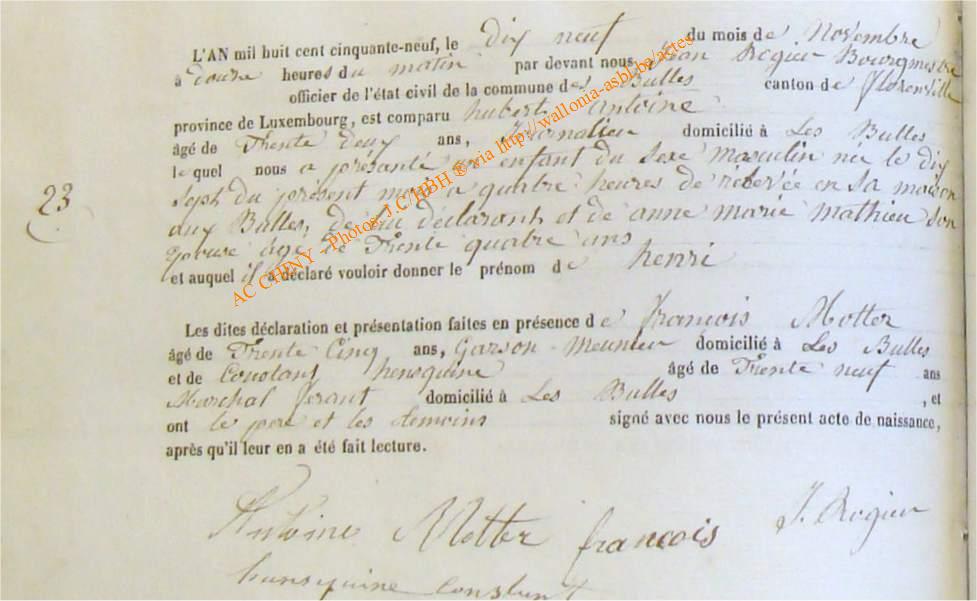 L'AN mil huit cent cinquante-neuf, le dix neuf du mois de Novembre
à douze heures du matin par devant nous Jean Rogier Bourgmestre
officier de l'état civil de la commune des Bulles canton de florenville
province de Luxembourg, est comparu hubert antoine
âgé de Trente deux ans, domicilié à Les Bulles
lequel nous a présenté un enfant du sexe masculin née le dix
Sept du présent mois a quatre heures de relevée en sa maison
aux Bulles, de lui déclarant et de anne marie mathieu son
epouse âgé de Trente quatre ans
et auquel il a déclaré vouloir donner le prénom de henri
23
Les dites déclaration et présentation faites en présence de françois Motter
âgé de Trente Cinq ans, Garson Meunier domicilié à Les Bulles
et de Constant hensquine âgé de Trente neuf ans
Marchal ferant domicilié à Les Bulles , et
ont le pere et les temoins signé avec nous le présent acte de naissance,
après qu'il leur en a été fait lecture.
Antoine Motter françois J. Rogier
hensquine constant
AC CHINY - Photos: J.C/HBH ® via http://wallonia-asbl.be/actes